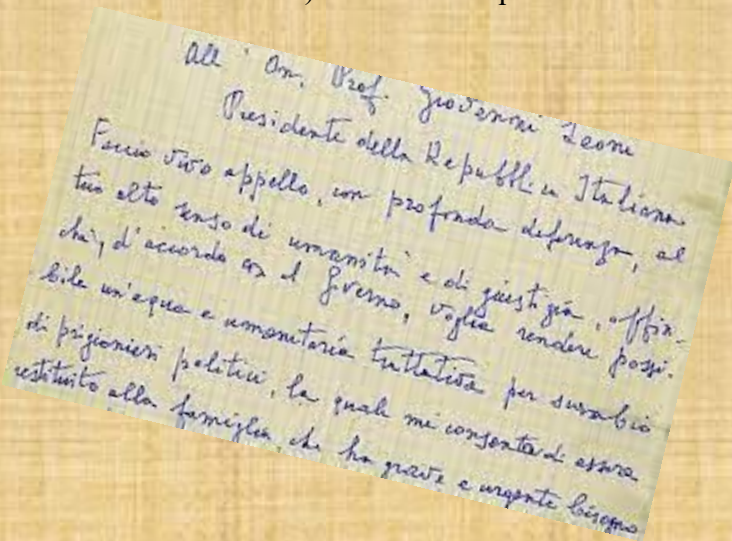 All'On. Prof. Giovanni Leone
Presidente della Repubblica Italiana
Faccio vivo appello, con profonda deferenza, al
tuo alto senso di umanità e di giustizia, affin-
chè, d'accordo con il Governo, voglia rendere possi-
bile un'equa e umanitaria trattativa per scambio
di prigionieri politici, la quale mi consenta di essere
restituito alla famiglia che ha grave e urgente bisogno